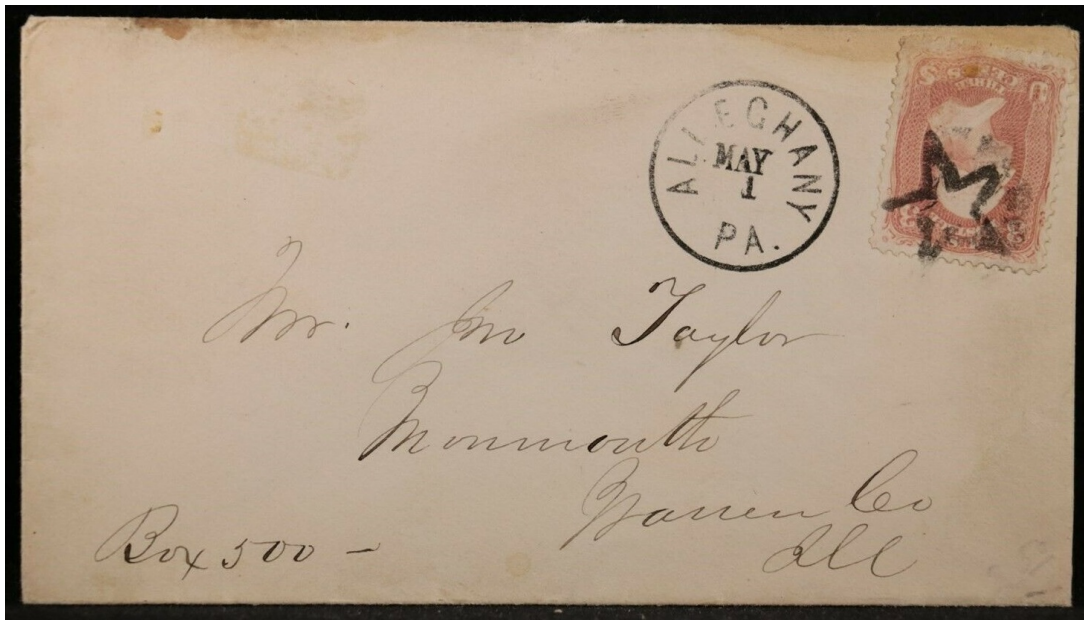 ALLEGHANY
MAY
1
PA.
Mr. Jno Taylor
Monmouth
Warren Co
Ill
Box 500 –